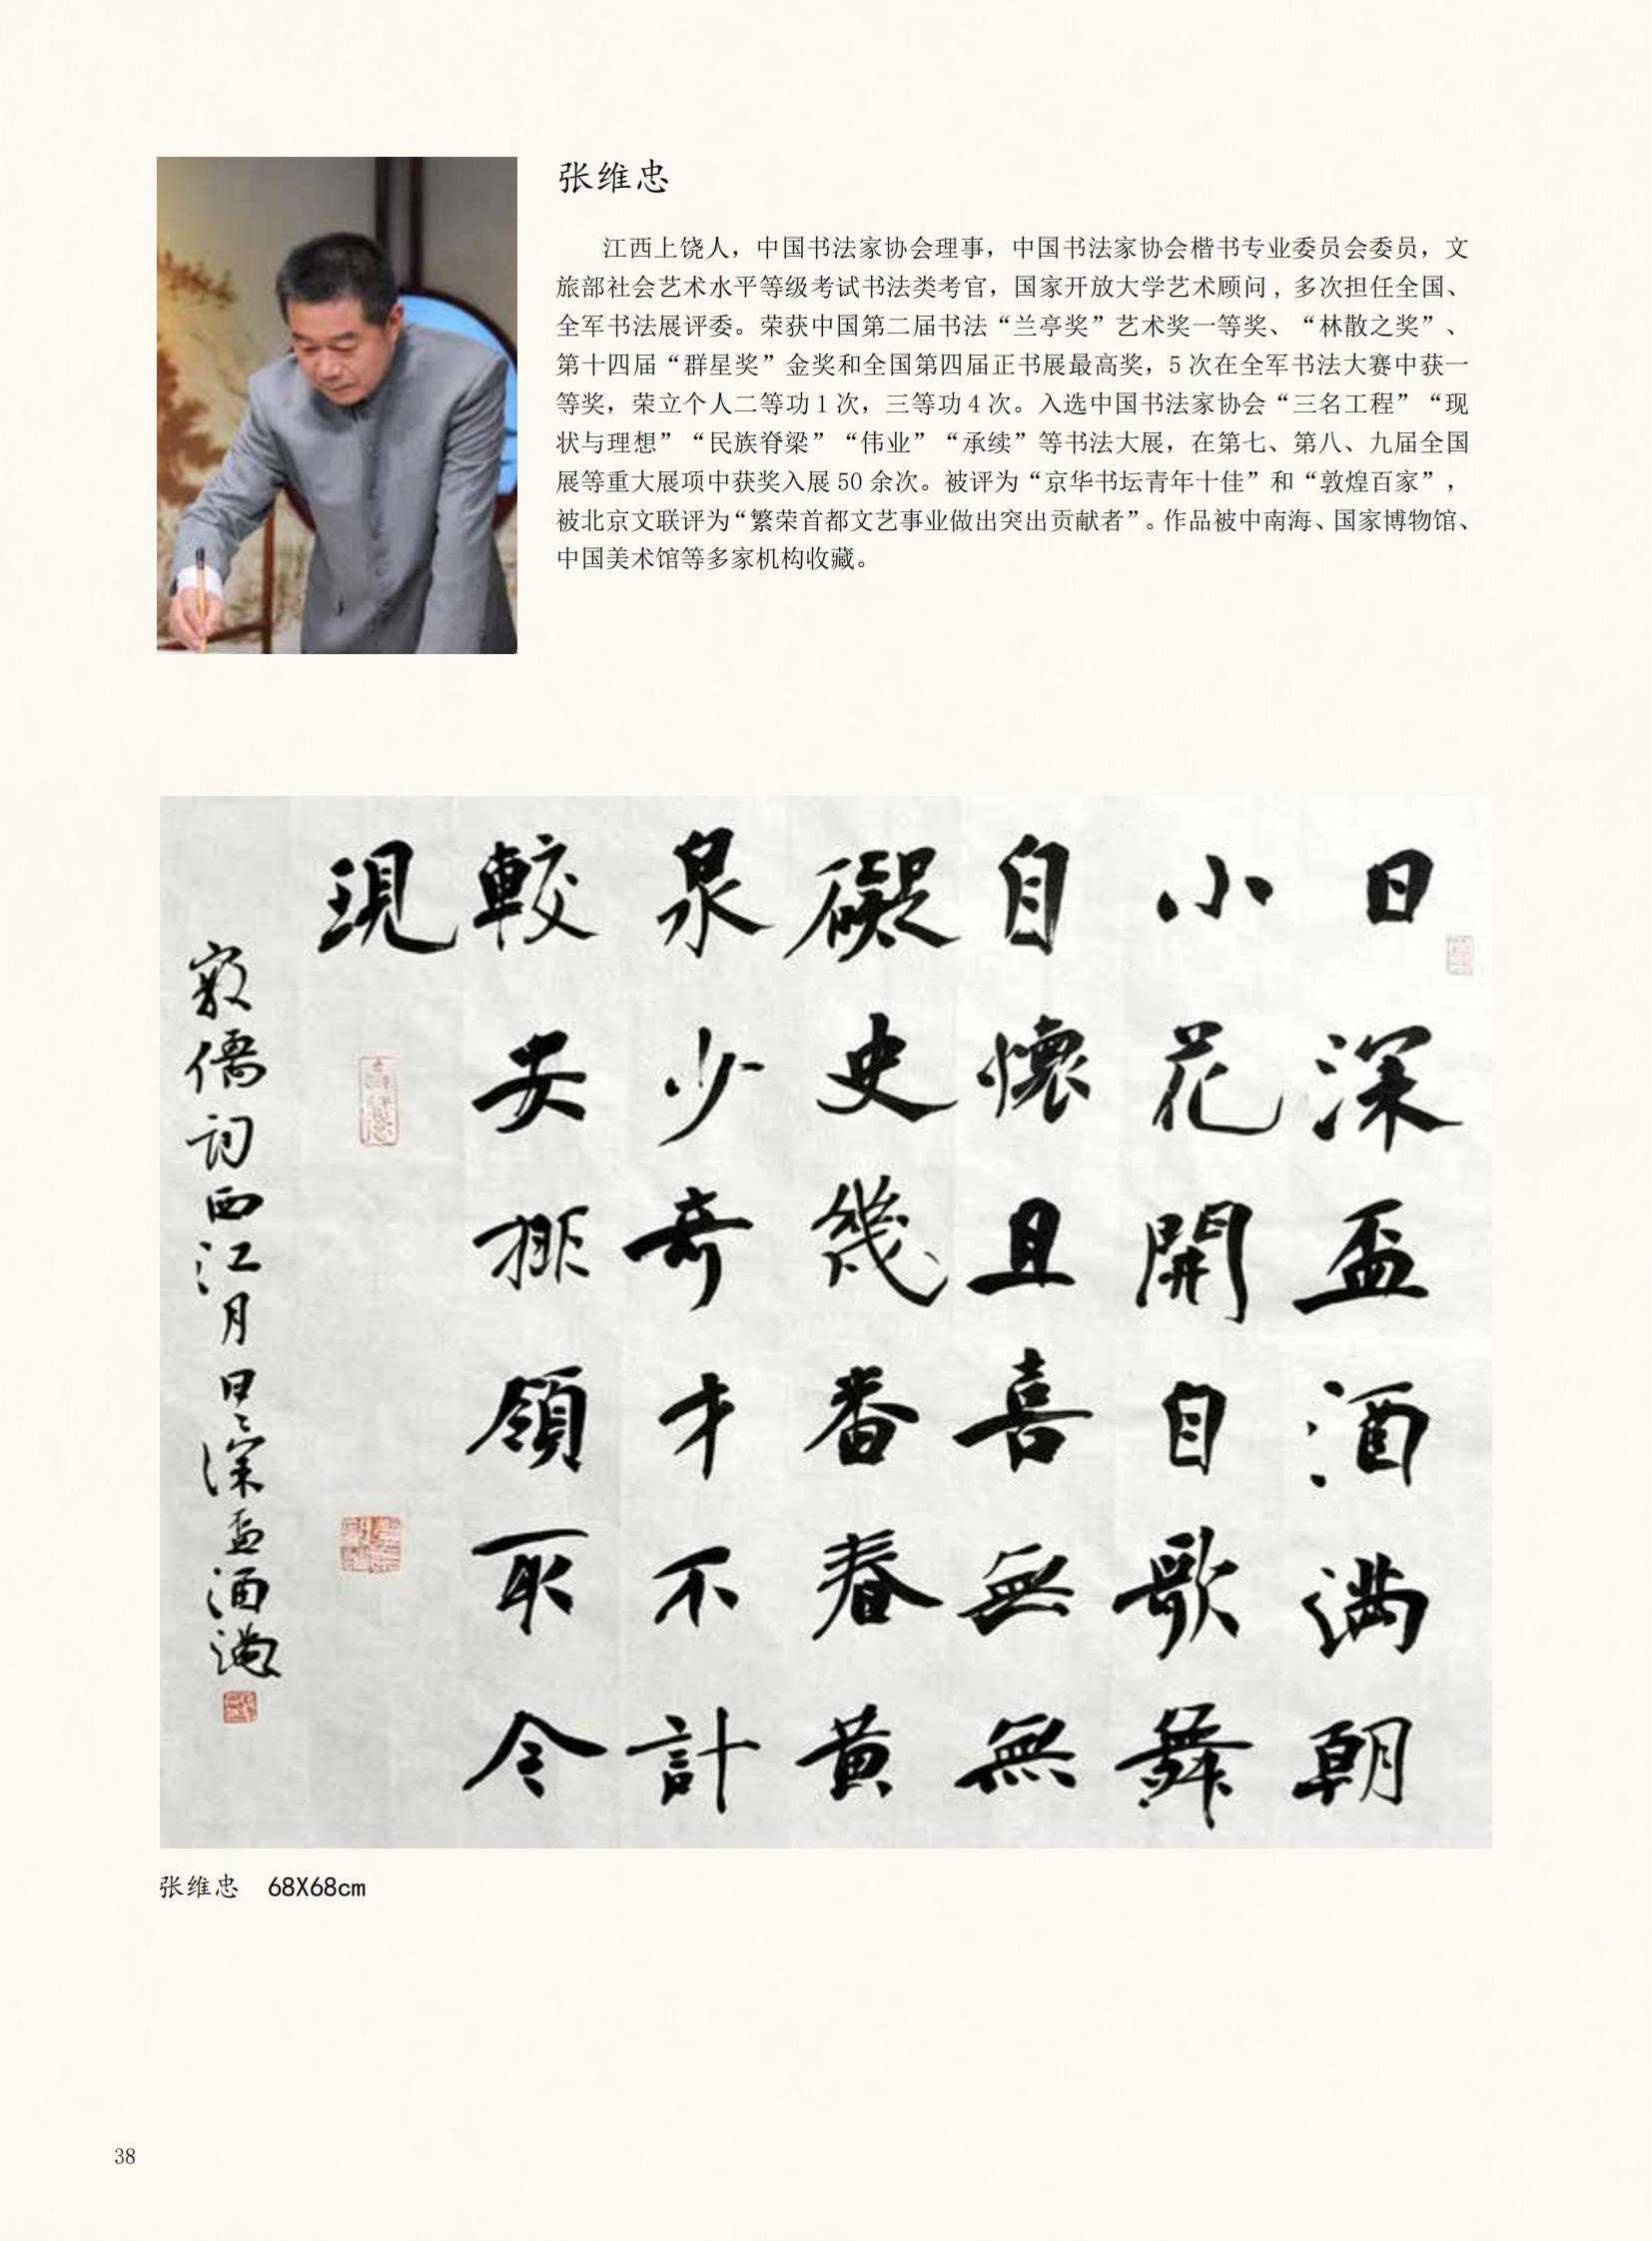 张维忠
江西上饶人，中国书法家协会理事，中国书法家协会楷书专业委员会委员，文
旅部社会艺术水平等级考试书法类考官，国家开放大学艺术顾问，多次担任全国、
全军书法展评委。荣获中国第二届书法“兰亭奖”艺术奖一等奖、“林散之奖”、
第十四届“群星奖”金奖和全国第四届正书展最高奖，5 次在全军书法大赛中获一
等奖，荣立个人二等功 1 次，三等功 4 次。入选中国书法家协会“三名工程”“现
状与理想”“民族脊梁”“伟业”“承续”等书法大展，在第七、第八、九届全国
展等重大展项中获奖入展 50 余次。被评为“京华书坛青年十佳”和“敦煌百家”，
被北京文联评为“繁荣首都文艺事业做出突出贡献者”。作品被中南海、国家博物馆、
中国美术馆等多家机构收藏。
日深盃酒滿朝
小花開自歌舞
自懷且喜無無
礙史幾番春黄
泉少奇才不計
較安排領取今
現
敦儒詞西江月日〻深盃酒滿
张维忠 68X68cm
38